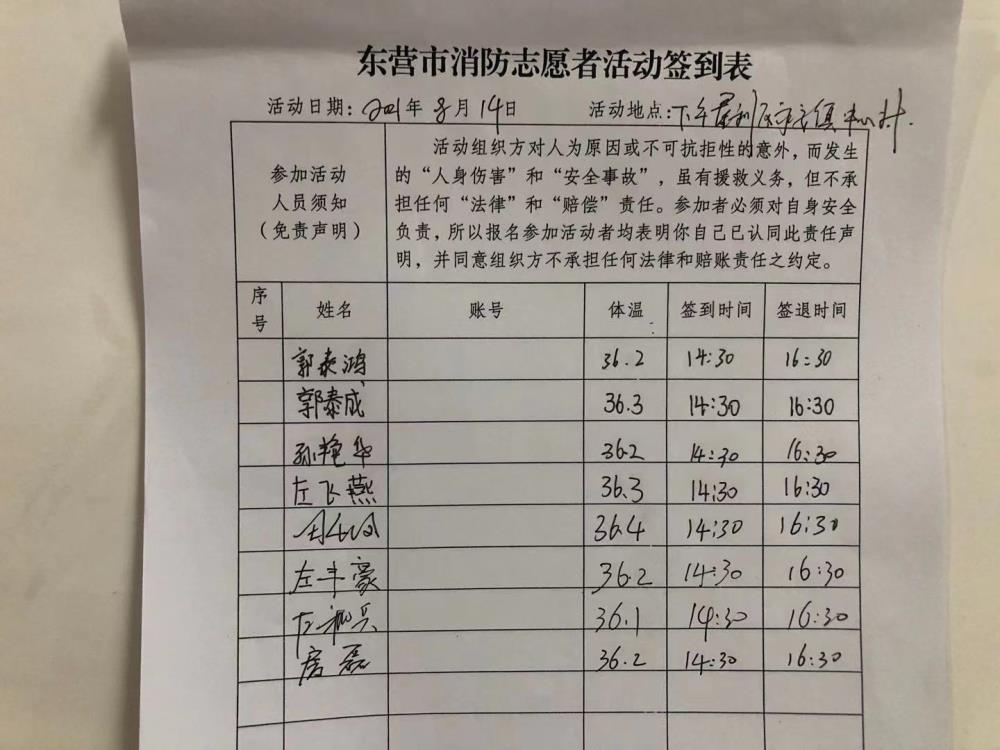 东营市消防志愿者活动签到表
活动日期：2021年8月14日 活动地点：下午垦利区 镇 村.
参加活动
人员须知
（免责声明）
活动组织方对人为原因或不可抗拒性的意外，而发生
的“人身伤害”和“安全事故”，虽有援救义务，但不承
担任何“法律”和“赔偿”责任。参加者必须对自身安全
负责，所以报名参加活动者均表明你自己已认同此责任声
明，并同意组织方不承担任何法律和赔账责任之约定。
序号 姓名 账号 体温 签到时间 签退时间
郭泰鸿 36.2 14:30 16:30
郭泰成 36.3 14:30 16:30
孙艳华 36.2 14:30 16:30
左飞燕 36.3 14:30 16:30
36.4 14:30 16:30
左丰豪 36.2 14:30 16:30
左 兴 36.1 14:30 16:30
房磊 36.2 14:30 16:30